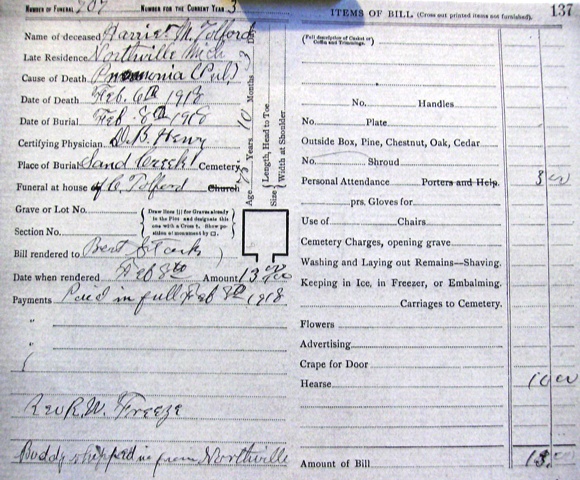 NUMBER OF FUNERAL 207 NUMBER FOR THE CURRENT YEAR 3
Name of deceased Harriet M. Tolford
Late Residence Northville Mich
Cause of Death Pnemonia (Pul)
Date of Death Feb. 6th 1918
Date of Burial Feb - 8th 1918
Certifying Physician D. B. Henry
Place of Burial Sand Creek Cemetery
Funeral at house of C. Tolford Church
Grave or Lot No.
Section No.
{ Draw lines || for Graves already in the Plot and designate this one with a Cross †. Show position of monument by □. }
Bill rendered to Bert Starks
Date when rendered Feb 8th Amount 13 00
Payments Paid in full Feb 8th 1918
"
"
Rev R. W. Freeze
Buddy shipped in from Northville
Age Years, 10 Months, 3 Days
Size { Length, Head to Toe
Width at Shoulder
ITEMS OF BILL (Cross out printed items not furnished). 137
(Full description of Casket or Coffin and Trimmings.
No. Handles
No. Plate
Outside Box, Pine, Chestnut, Oak, Cedar
No. Shroud
Personal Attendance Porters and Help. 3 00
prs. Gloves for
Use of Chairs
Cemetery Charges, opening grave
Washing and Laying out Remains—Shaving.
Keeping in Ice, in Freezer, or Embalming.
Carriages to Cemetery.
Flowers
Advertising
Crape for Door
Hearse 10 00
Amount of Bill 13.00